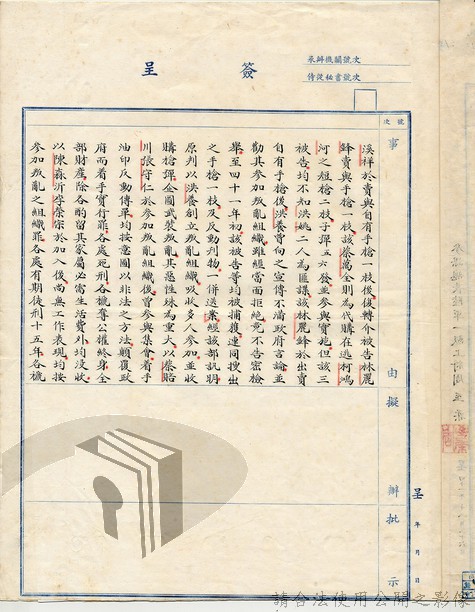 簽呈
承辦機關號次
侍從秘書號次
號次
事由擬辦批示
溪祥於賣與自有手槍一枝後復轉介被告林麗
鋒賣與手槍一枝該蔡萬全則為代購在逃柯鴻
河之短槍二枝子彈五六發並參與實施但該三
被告均不知洪姚二人為匪諜該林麗鋒於出賣
自有手槍後洪養曾向之宣傳不滿政府言論並
勸其參加叛亂組織雖經當面拒絕竟不告密檢
舉至四十一年初該被告等均被捕獲連同搜出
之手槍一枝及反動刊物一併送案經該部訊明
原判以洪養創立叛亂組織吸收多人參加並收
購槍彈企圖武裝叛亂其惡性殊為重大以蔡陪
川張守仁於參加叛亂組織後曾參與集會着手
油印反動傳單均按意圖以非法之方法顛覆政
府而着手實行罪各處死刑各褫奪公權終身全
部財產除各酌留其家屬必需生活費外均沒收
以陳淼沂李榮宗於加入後尚無工作表現均按
參加叛亂之組織罪各處有期徒刑十五年各褫
呈
年月日
請合法使用公開之影像